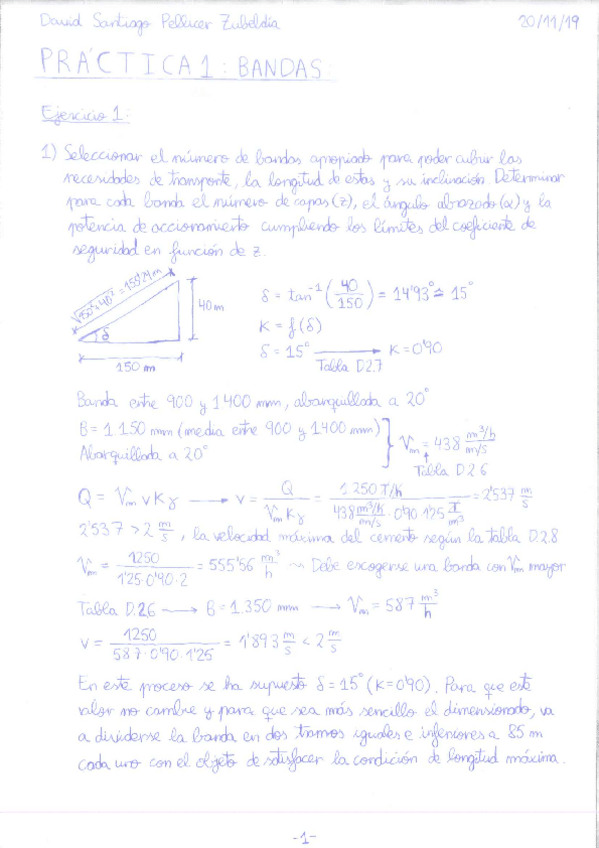 David Santiago Pellicer Zubeldía 20/11/19
PRÁCTICA 1: BANDAS
Ejercicio 1:
1) Seleccionar el número de bandas apropiado para poder cubrir las
necesidades de transporte, la longitud de estas y su inclinación. Determinar
para cada banda el número de capas (z), el ángulo abrazado (α) y la
potencia de accionamiento cumpliendo los límites del coeficiente de
seguridad en función de z.
√150²+40² = 155'24 m
40 m
δ
150 m
δ = tan⁻¹(40/150) = 14'93° ≃ 15°
K = f(δ)
δ = 15° → K = 0'90
Tabla D.2.7
Banda entre 900 y 1400 mm, abarquillada a 20°
B = 1.150 mm (media entre 900 y 1400 mm)
Abarquillada a 20°
Vm = 438 m³/h / m/s
Tabla D.2.6
Q = Vm v K γ → v = Q / Vm K γ = 1250 T/h / 438 m³/h / m/s · 0'90 · 1'25 T/m³ = 2'537 m/s
2'537 > 2 m/s, la velocidad máxima del cemento según la tabla D.2.8
Vm = 1250 / 1'25·0'90·2 = 555'56 m³/h ⤳ Debe escogerse una banda con Vm mayor
Tabla D.2.6 → B = 1.350 mm → Vm = 587 m³/h
v = 1250 / 587·0'90·1'25 = 1'893 m/s < 2 m/s
En este proceso se ha supuesto δ = 15° (K = 0'90). Para que este
valor no cambie y para que sea más sencillo el dimensionado, va
a dividirse la banda en dos tramos iguales e inferiores a 85 m
cada uno con el objeto de satisfacer la condición de longitud máxima.
-1-